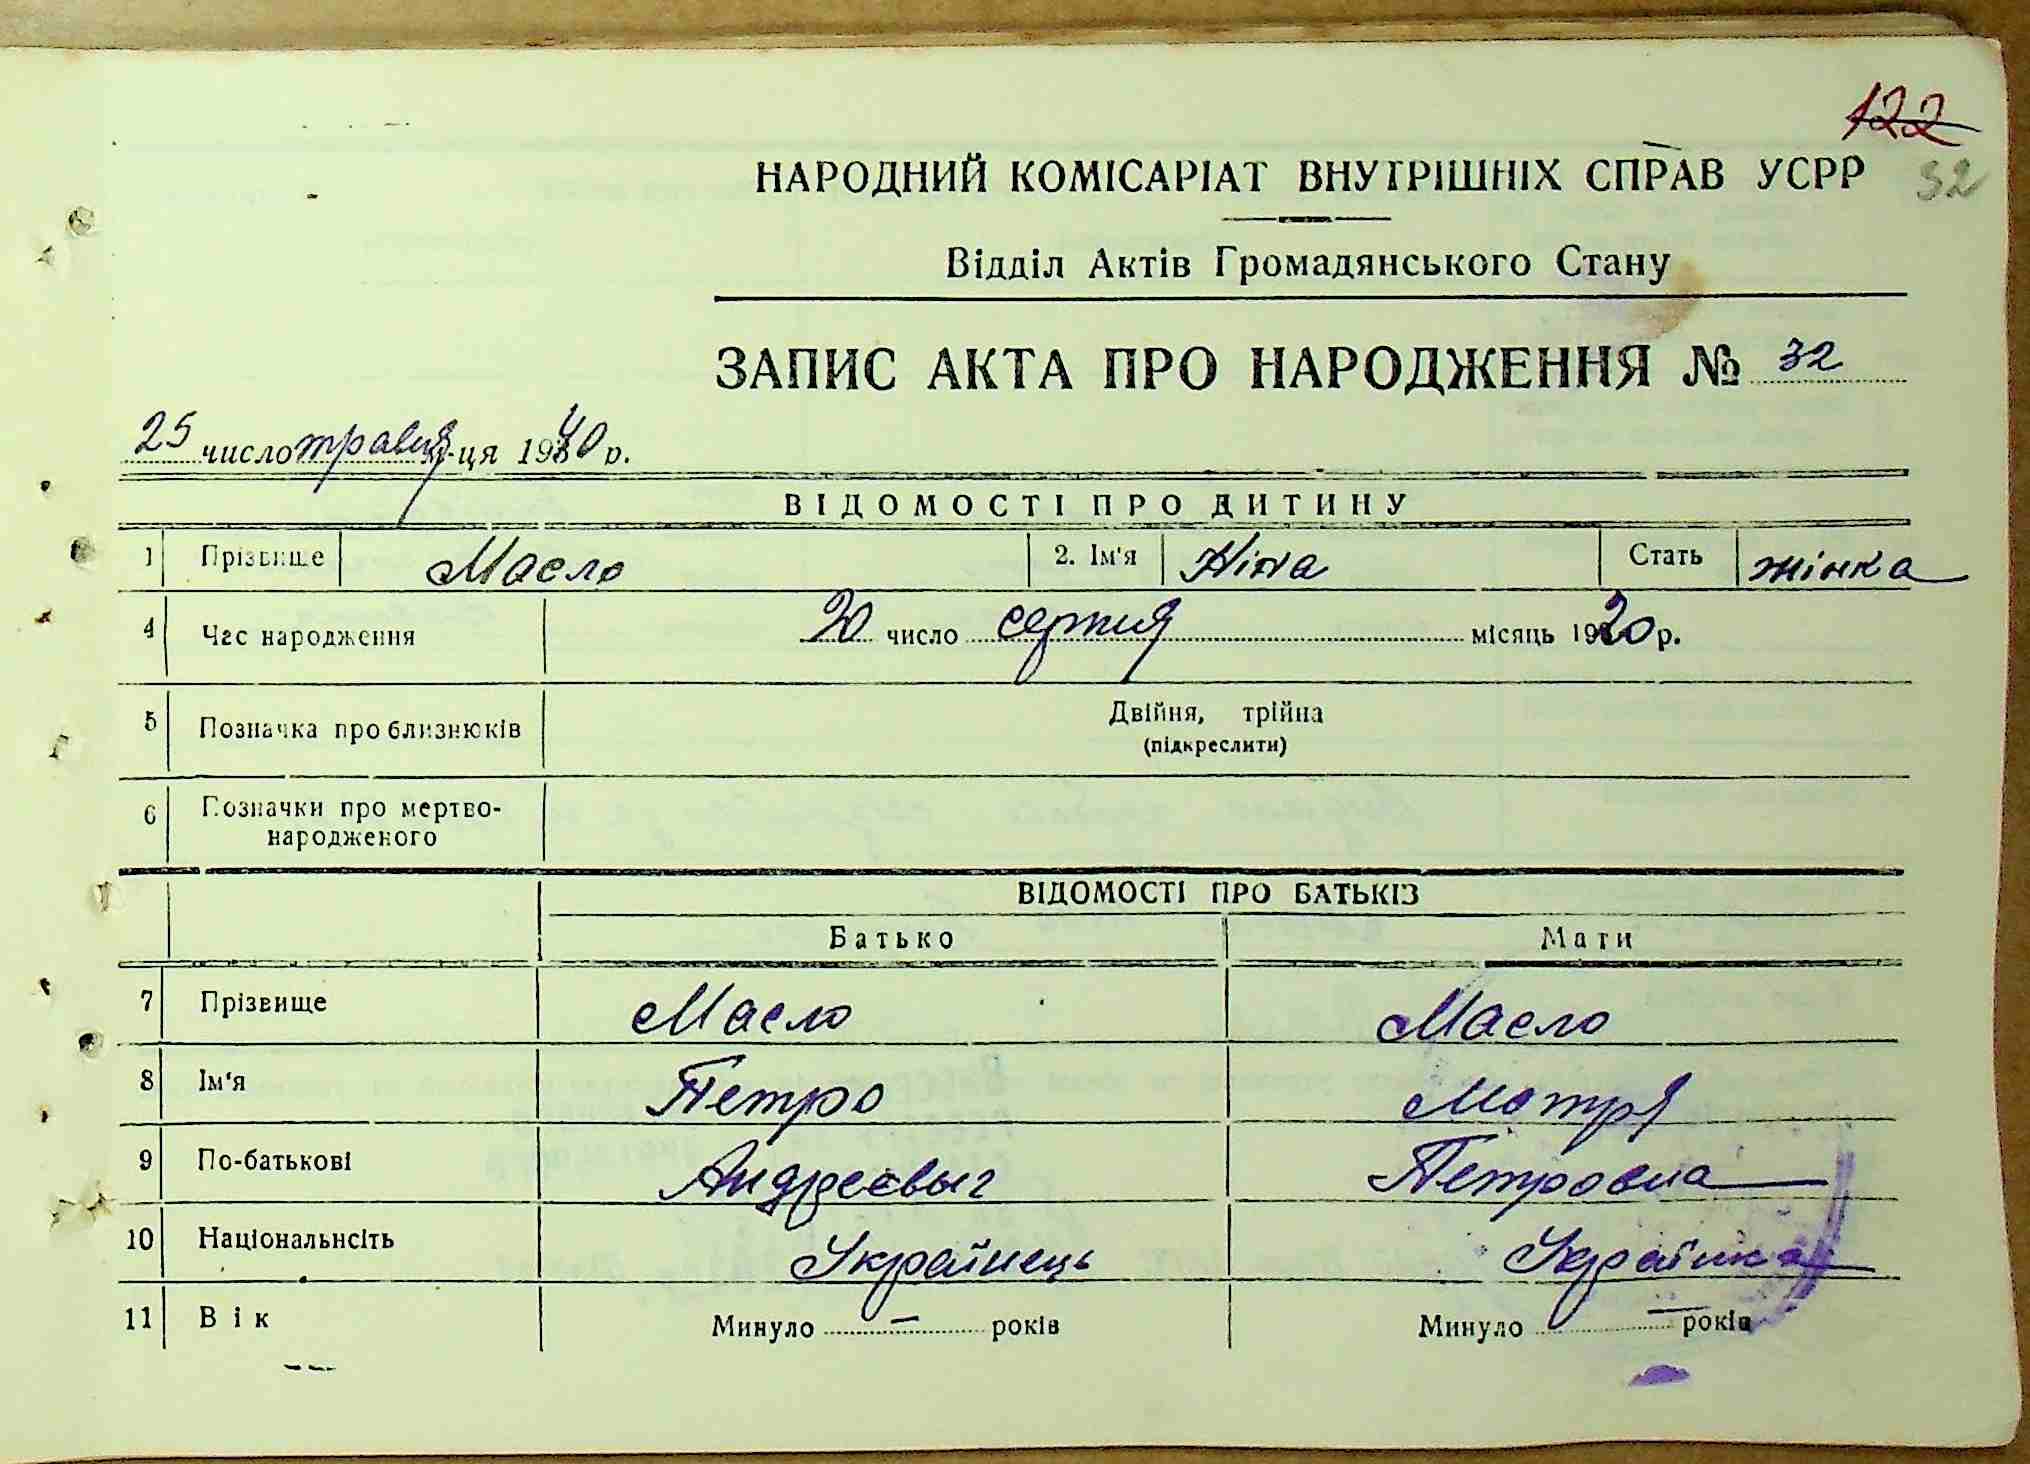 122
НАРОДНИЙ КОМІСАРІАТ ВНУТРІШНІХ СПРАВ УСРР 32
Відділ Актів Громадянського Стану
ЗАПИС АКТА ПРО НАРОДЖЕННЯ № 32
25 число травня м-ця 1940 р.
ВІДОМОСТІ ПРО ДИТИНУ
1 Прізвище Масло 2. Ім'я Ніна Стать жінка
4 Час народження 20 число серпня місяць 1920 р.
5 Позначка про близнюків Двійня, трійна
(підкреслити)
6 Позначки про мертво-
народженого
ВІДОМОСТІ ПРО БАТЬКІВ
Батько Мати
7 Прізвище Масло Масло
8 Ім'я Петро Мотря
9 По-батькові Андреєвыч Петровна
10 Національнсіть Украйнець Украйнка
11 Вік Минуло — років Минуло — років